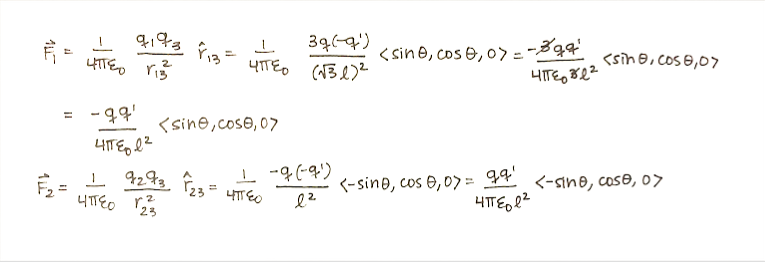 F⃗₁ = 1/(4πε₀) q₁q₃/r₁₃² r̂₁₃ = 1/(4πε₀) 3q(-q')/(√3 l)² <sinθ, cosθ, 0> = -3qq'/(4πε₀3l²) <sinθ, cosθ, 0>
= -qq'/(4πε₀l²) <sinθ, cosθ, 0>
F⃗₂ = 1/(4πε₀) q₂q₃/r₂₃² r̂₂₃ = 1/(4πε₀) -q(-q')/l² <-sinθ, cosθ, 0> = qq'/(4πε₀l²) <-sinθ, cosθ, 0>